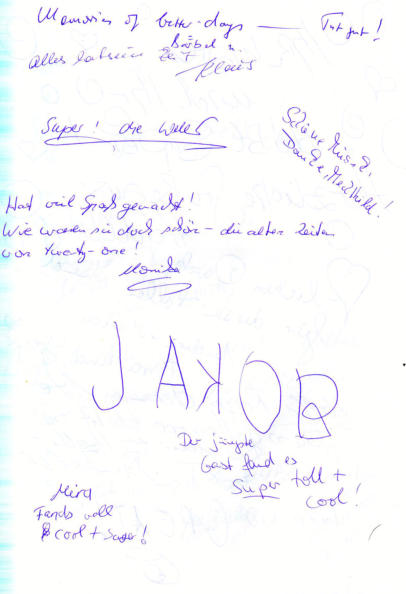 Memories of better days — Tut gut!
Bärbel u.
alles hat seine Zeit Klaus
Super! die
Schöne Musik,
Danke, Mechthild!
Hat viel Spaß gemacht!
Wie waren sie doch schön - die alten Zeiten
von twenty-one!
Monika
JAKOB
Der jüngste
Gast fand es
Super toll +
cool!
Mira
Fands voll
cool + super!